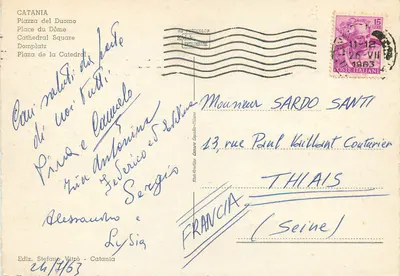 CATANIA
Piazza del Duomo
Place du Dôme
Cathedral Square
Domplatz
Plaza de la Catedral
Cari saluti da parte
di noi tutti
Pina e Carmelo
Zia Antonina
Federico ed
Sergio
Alessandro e
Lydia
24/7/63
Ediz. Stefano - Catania
15
11-12
VII
1963
POSTE ITALIANE
Monsieur SARDO SANTI
13, rue Paul Vaillant Couturier
THIAIS
(Seine)
FRANCIA